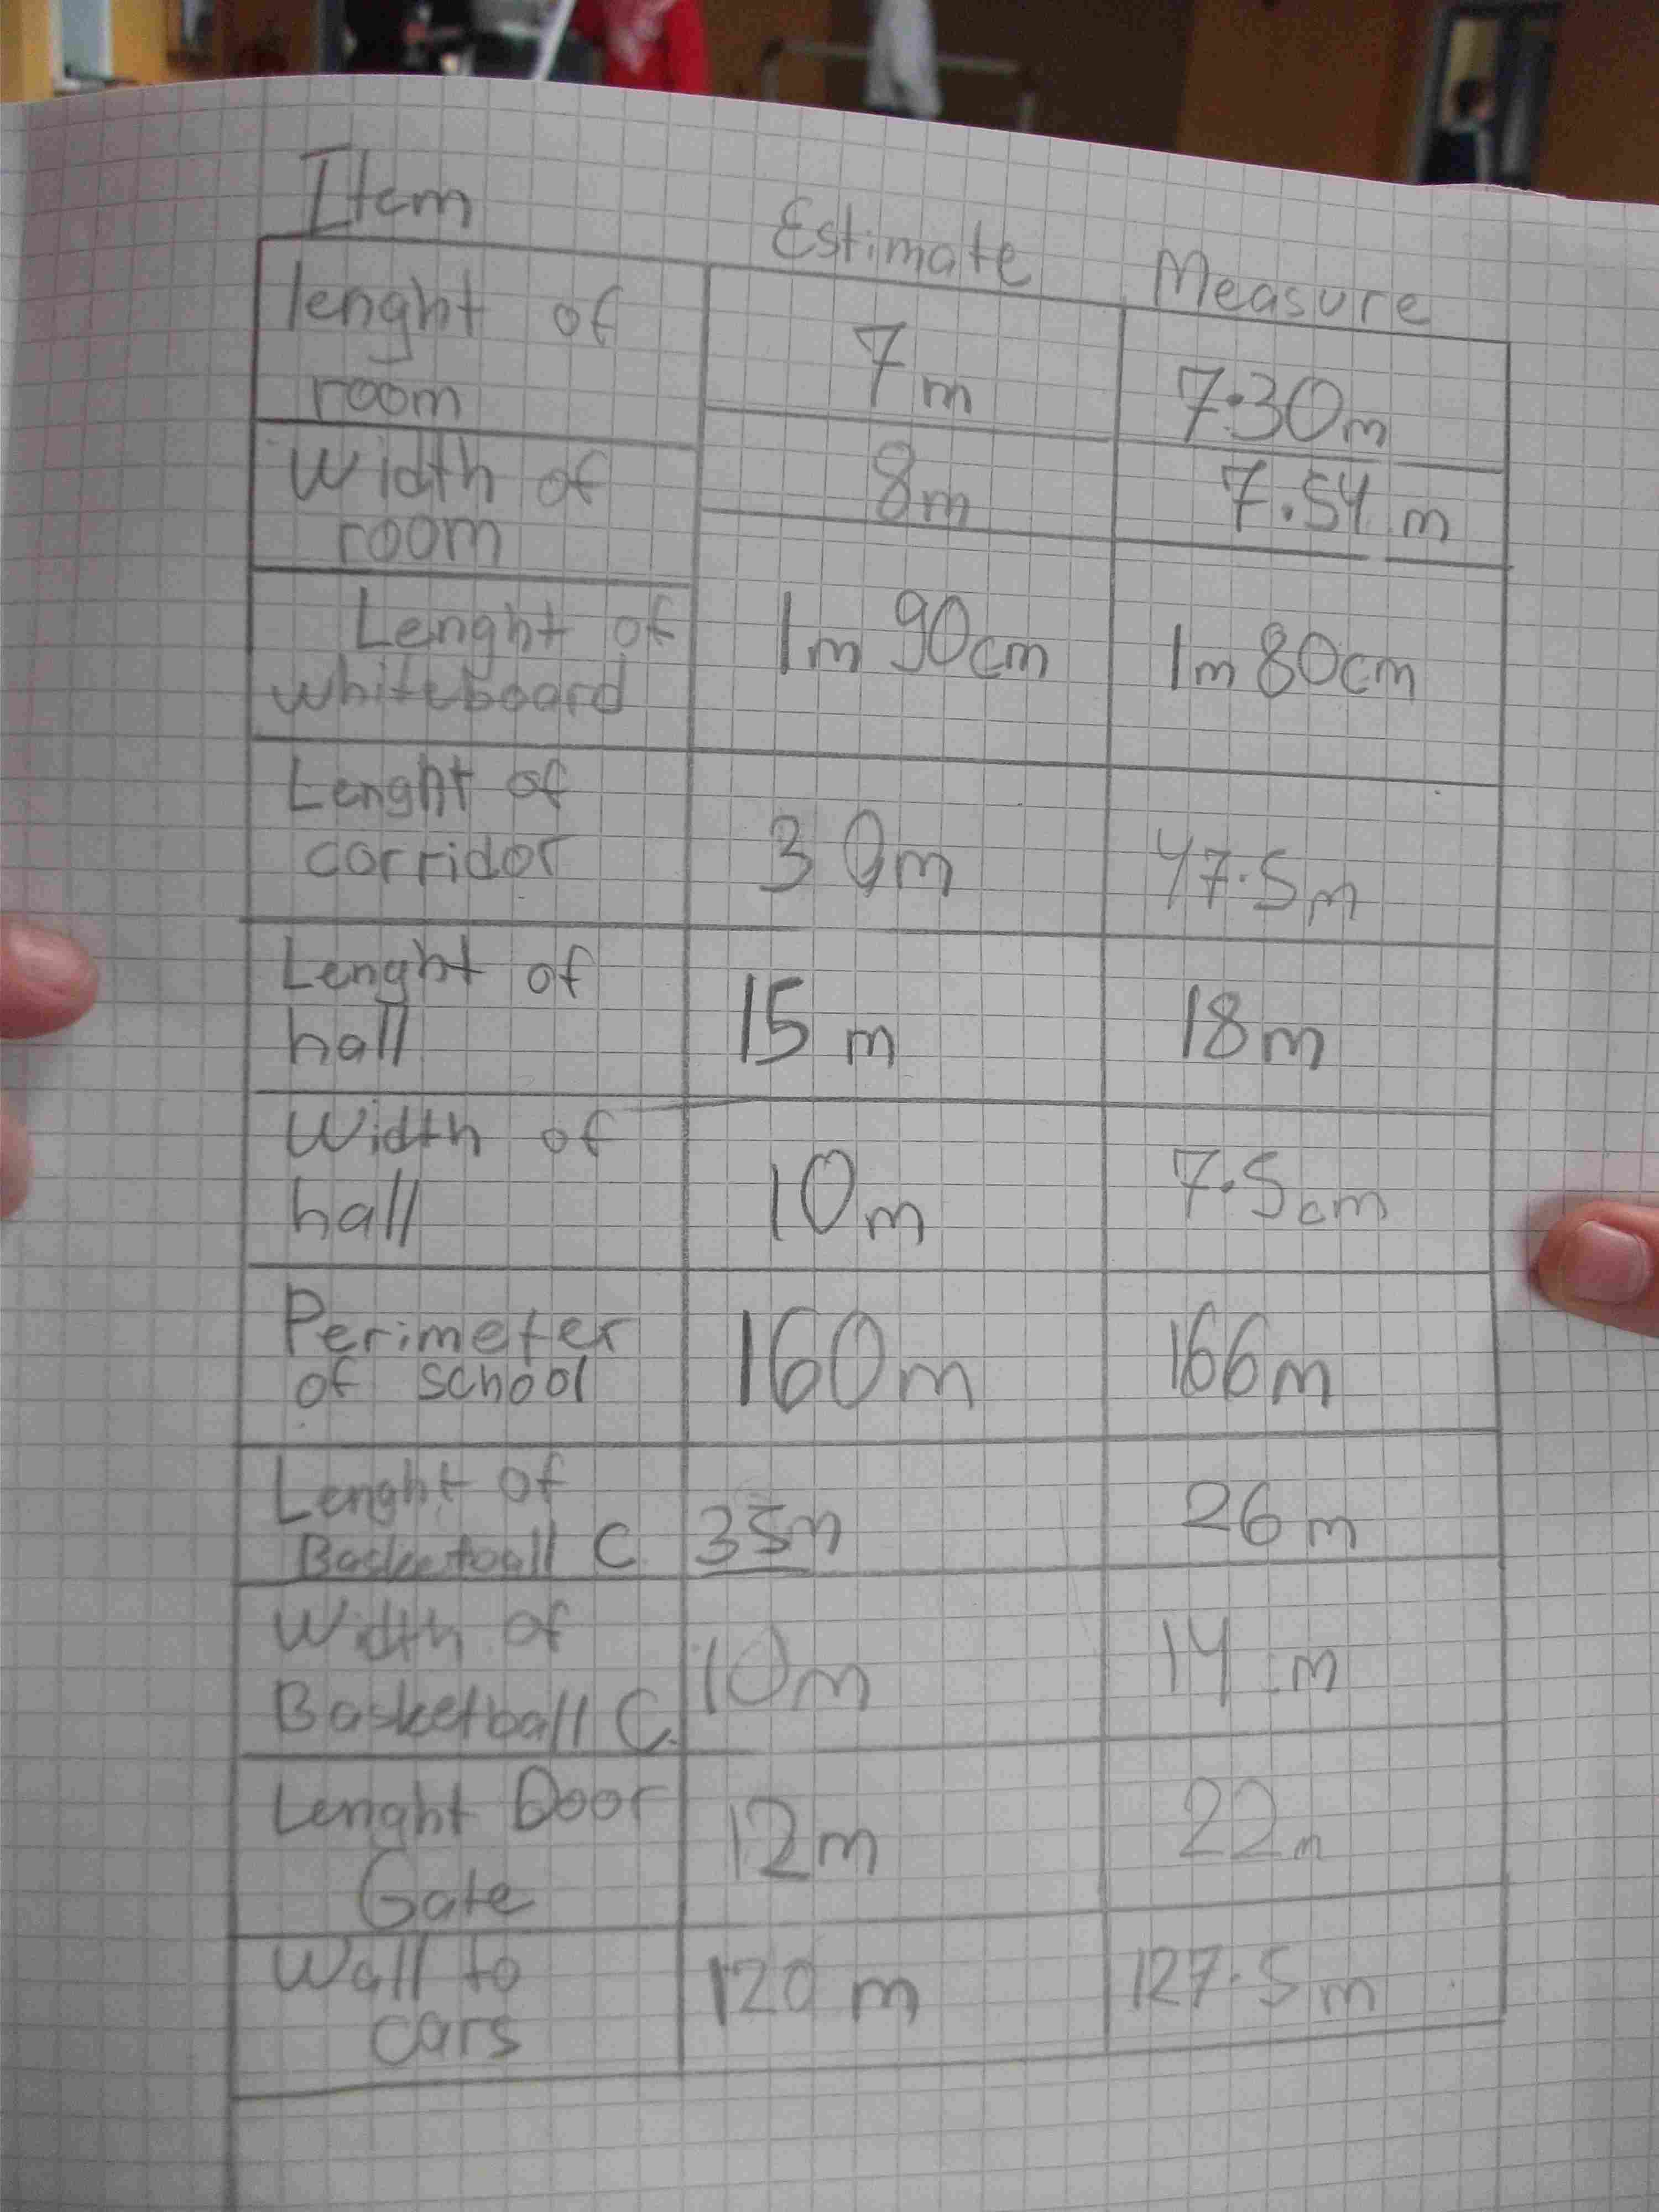 Item Estimate Measure
lenght of
room 7m 7.30m
Width of
room 8m 7.54 m
Lenght of
whiteboard 1m 90cm 1m 80cm
Lenght of
corridor 30m 47.5m
Lenght of
hall 15 m 18m
Width of
hall 10m 7.5cm
Perimeter
of school 160m 166m
Lenght of
Basketball C 35m 26m
Width of
Basketball C. 10m 14 m
Lenght Door
Gate 12m 22m
Wall to
cars 120 m 127.5m